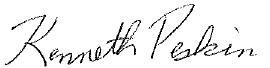 Kenneth Peskin